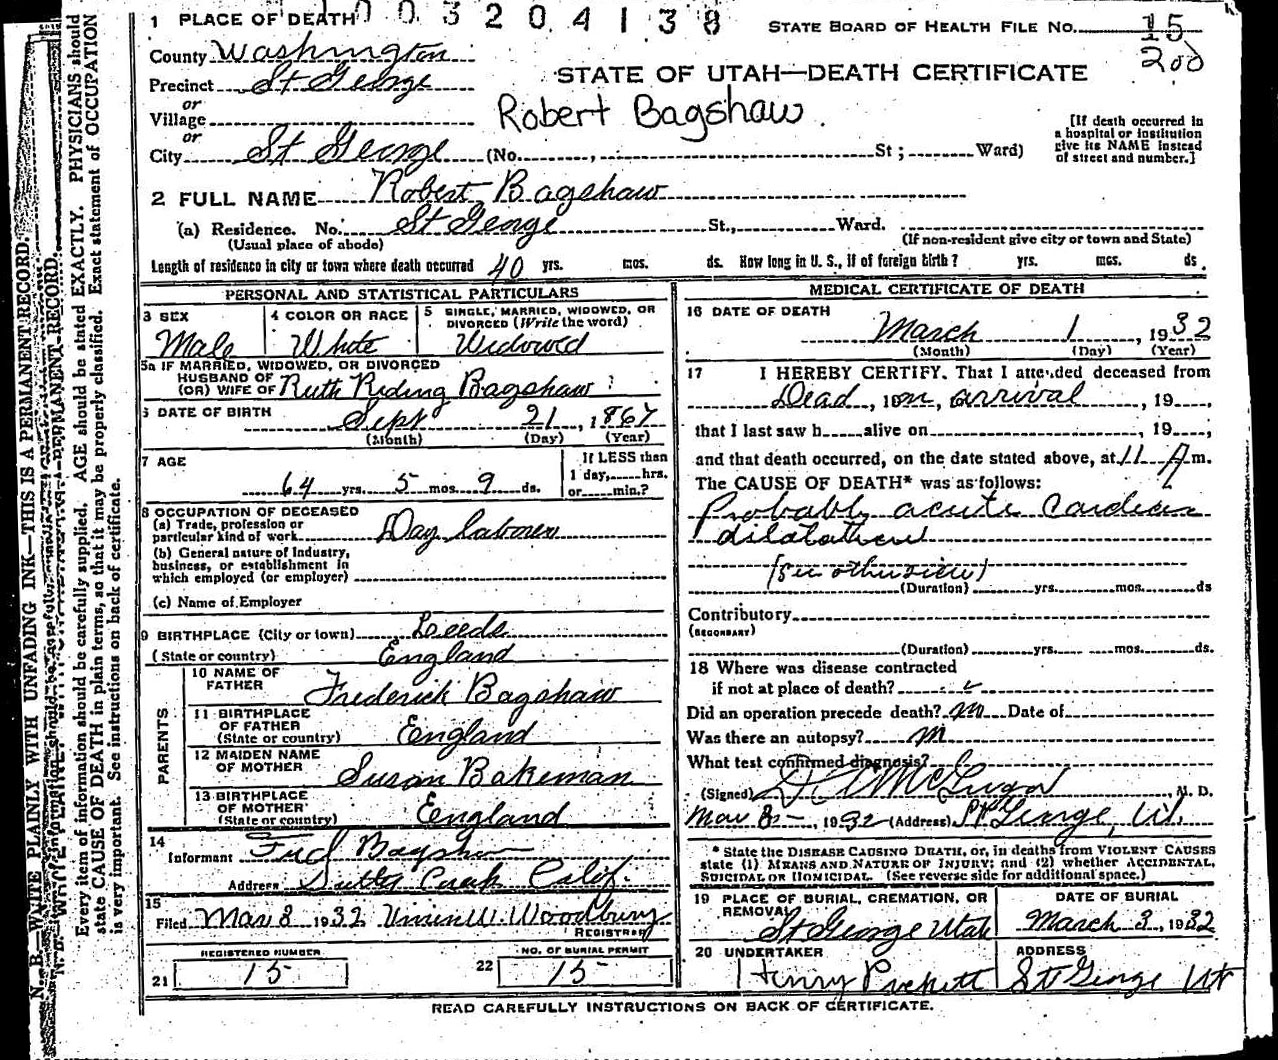 1 PLACE OF DEATH 003204138 STATE BOARD OF HEALTH FILE NO. 15
200
County Washington
Precinct St George
STATE OF UTAH—DEATH CERTIFICATE
or
Village
Robert Bagshaw.
or
City St George (No. , St; Ward)
[If death occurred in
a hospital or institution
give its NAME instead
of street and number.]
2 FULL NAME Robert Bagshaw
(a) Residence. No. St George St., Ward.
(Usual place of abode) (If non-resident give city or town and State)
Length of residence in city or town where death occurred 40 yrs. mos. ds. How long in U. S., if of foreign birth? yrs. mos. ds.
PERSONAL AND STATISTICAL PARTICULARS
3 SEX 4 COLOR OR RACE 5 SINGLE, MARRIED, WIDOWED, OR
DIVORCED (Write the word)
Male White Widowed
5a IF MARRIED, WIDOWED, OR DIVORCED
HUSBAND OF
(OR) WIFE OF Ruth Riding Bagshaw
6 DATE OF BIRTH Sept 21, 1867
(Month) (Day) (Year)
7 AGE If LESS than
1 day, hrs.
64 yrs. 5 mos. 9 ds. or min.?
8 OCCUPATION OF DECEASED
(a) Trade, profession or
particular kind of work Day laborer
(b) General nature of Industry,
business, or establishment in
which employed (or employer)
(c) Name of Employer
9 BIRTHPLACE (City or town) Leeds
(State or country) England
PARENTS
10 NAME OF
FATHER Frederick Bagshaw
11 BIRTHPLACE
OF FATHER
(State or country) England
12 MAIDEN NAME
OF MOTHER Susan Bakeman
13 BIRTHPLACE
OF MOTHER
(State or country) England
14
Informant Fred Bagshaw
Address Sutter Creek Calif.
15
Filed Mar 8 1932 Vivian W. Woodbury
REGISTRAR
REGISTERED NUMBER NO. OF BURIAL PERMIT
21 15 22 15
MEDICAL CERTIFICATE OF DEATH
16 DATE OF DEATH
March 1, 1932
(Month) (Day) (Year)
17 I HEREBY CERTIFY, That I attended deceased from
Dead, 19on, arrival, 19,
that I last saw h alive on , 19,
and that death occurred, on the date stated above, at 11 A m.
The CAUSE OF DEATH* was as follows:
Probably acute Cardiac
dilatation
(See other side)
(Duration) yrs. mos. ds
Contributory
(SECONDARY)
(Duration) yrs. mos. ds.
18 Where was disease contracted
if not at place of death?
Did an operation precede death? no Date of
Was there an autopsy? no
What test confirmed diagnosis?
(Signed) McGregor, M. D.
Mar 8, 1932 (Address) St George, Ut.
* State the DISEASE CAUSING DEATH, or, in deaths from VIOLENT CAUSES
state (1) MEANS AND NATURE OF INJURY; and (2) whether ACCIDENTAL,
SUICIDAL OR HOMICIDAL. (See reverse side for additional space.)
19 PLACE OF BURIAL, CREMATION, OR DATE OF BURIAL
REMOVAL St George Utah March 3, 1932
20 UNDERTAKER ADDRESS
Henry Pickett St George Ut
READ CAREFULLY INSTRUCTIONS ON BACK OF CERTIFICATE.
N. B.—WRITE PLAINLY WITH UNFADING INK—THIS IS A PERMANENT RECORD.
Every item of information should be carefully supplied. AGE should be stated EXACTLY. PHYSICIANS should
state CAUSE OF DEATH in plain terms, so that it may be properly classified. Exact statement of OCCUPATION
is very important. See instructions on back of certificate.